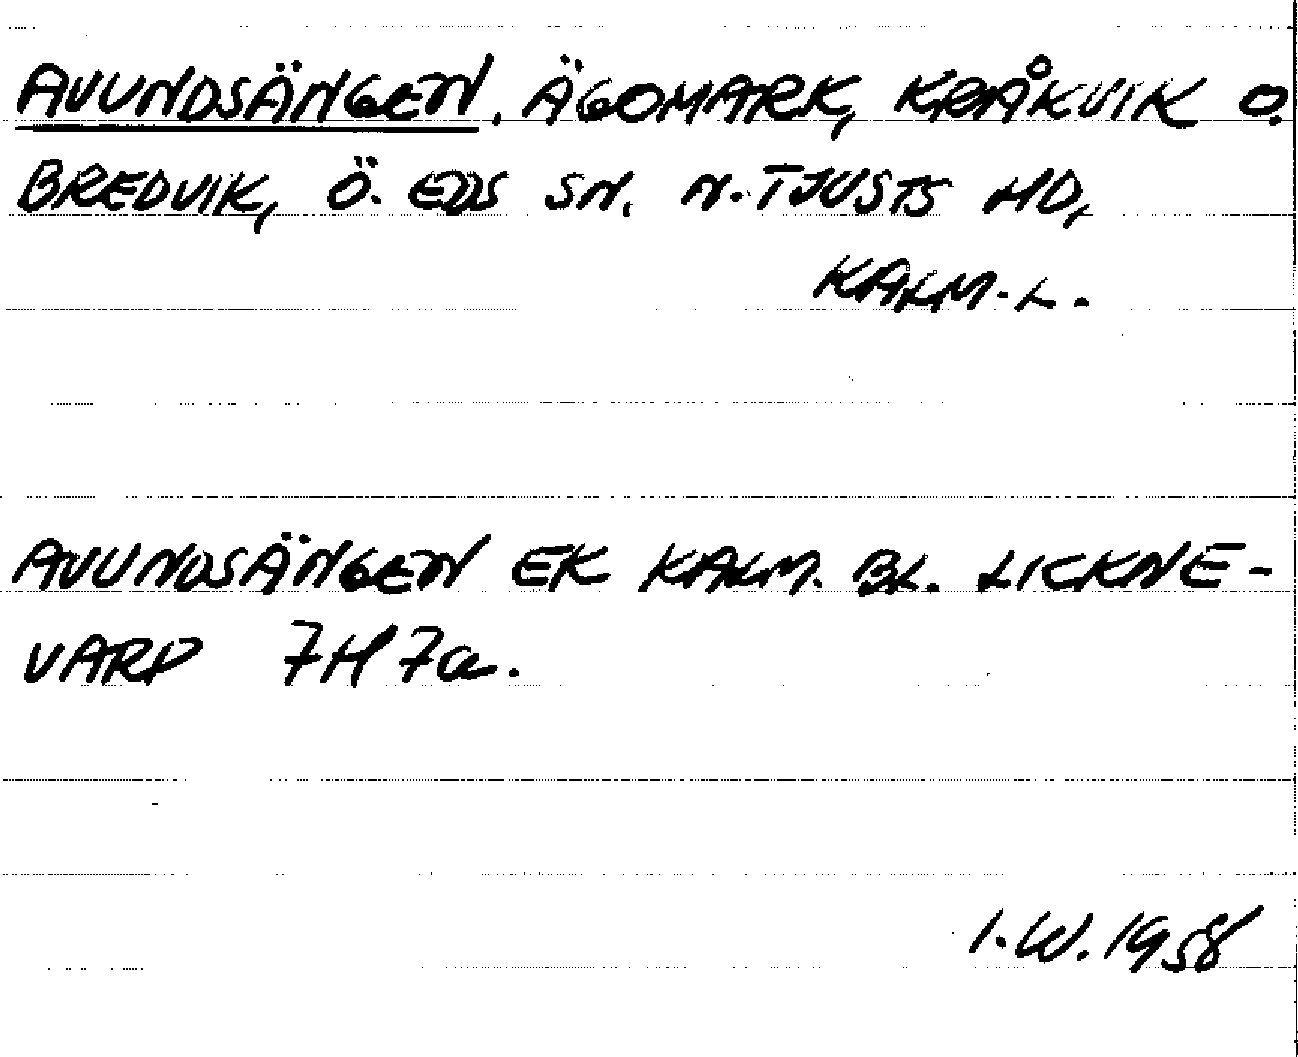 AVUNDSÄNGEN, ÄGOMARK, KRÅKVIK O.
BREDVIK, Ö. EDS SN. N. TJUSTS HD,
KALM. L.
AVUNDSÄNGEN EK KALM. BL. LICKNE-
VARP 7H 7a.
I. W. 1958